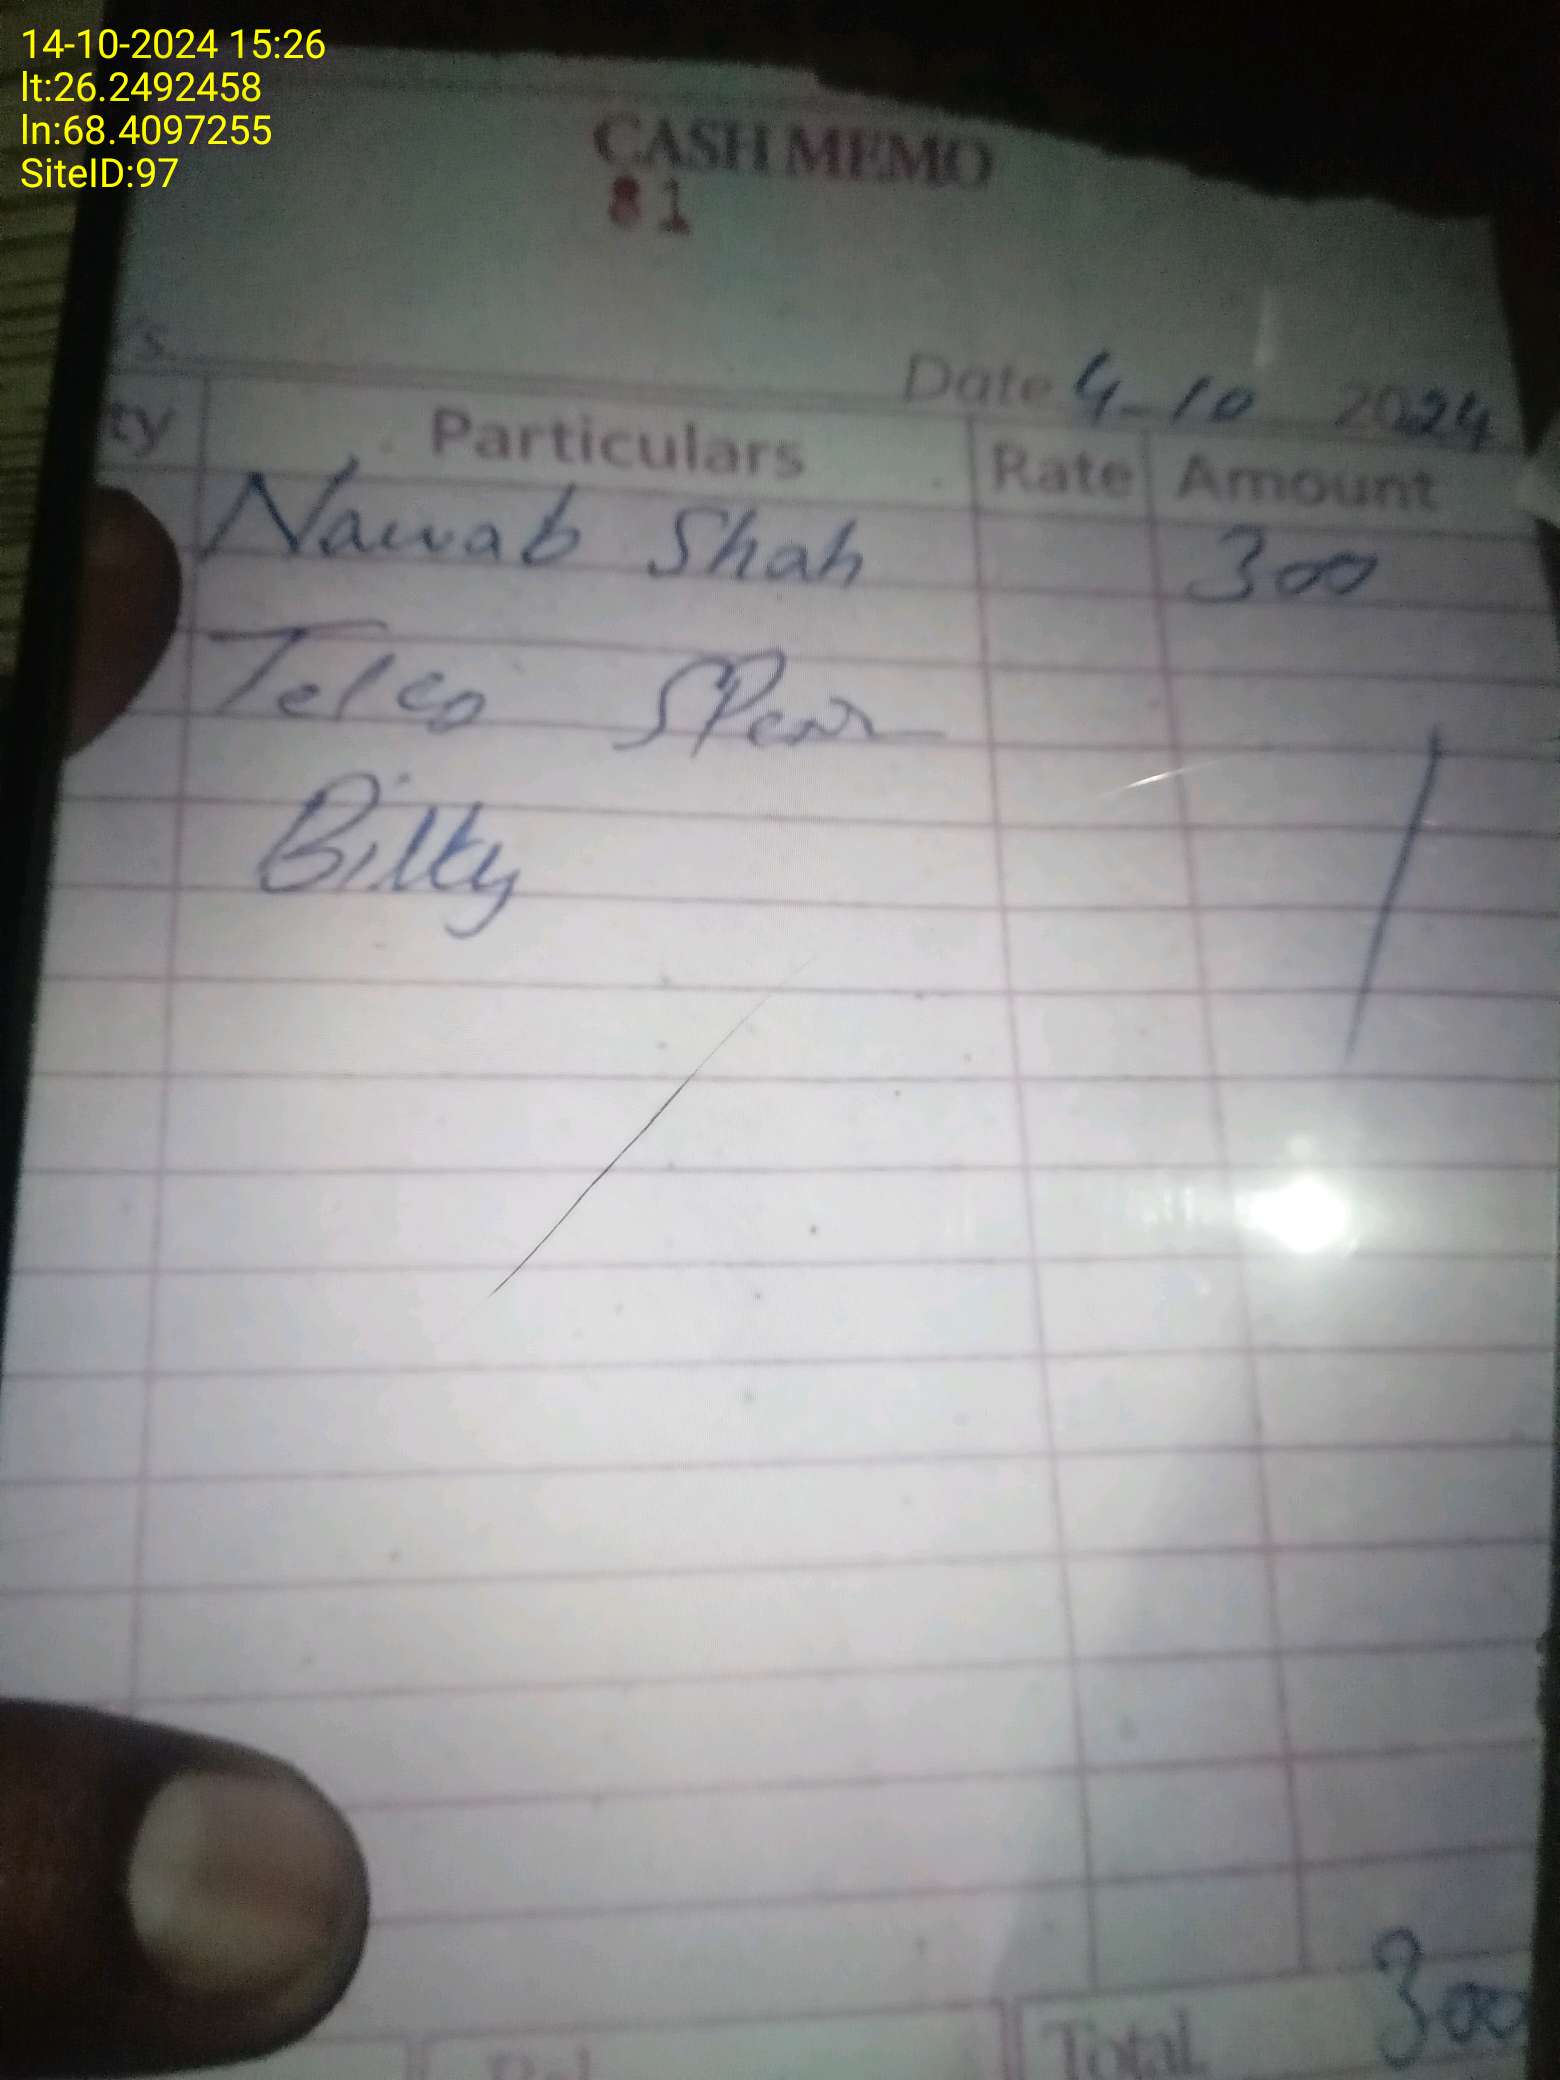 14-10-2024 15:26
lt:26.2492458
ln:68.4097255
SiteID:97
CASH MEMO
81
Date 4-10 2024
ty Particulars Rate Amount
Nawab Shah 300
Telco
Bilty
Total 300